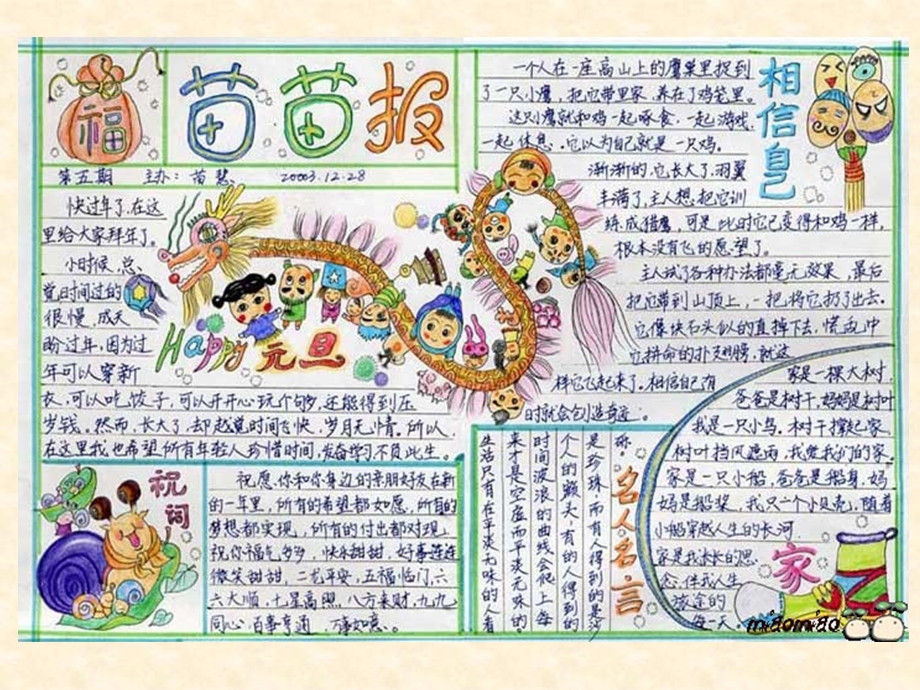 福
苗苗报
第五期 主办：苗慧 20003.12.28
快过年了，在这
里给大家拜年了。
小时候，总
觉时间过的
很慢，成天
盼过年，因为过
年可以穿新
衣，可以吃饺子，可以开开心玩个够，还能得到压
岁钱。然而，长大了，却越觉时间飞快，岁月无情。所以，
在这里我也希望所有年轻人珍惜时间，发奋学习不负此生。
Happy 元旦
相信自己
一个人在一座高山上的鹰巢里捉到
了一只小鹰，把它带回家，养在了鸡笼里。
这只小鹰就和鸡一起啄食，一起游戏，
一起休息。它以为自己就是一只鸡。
渐渐的，它长大了，羽翼
丰满了，主人想把它训
练成猎鹰，可是此时它已变得和鸡一样，
根本没有飞的愿望了。
主人试了各种办法都毫无效果，最后
把它带到山顶上，一把将它扔了出去。
它像块石头似的直掉下去，慌乱中
它拼命的扑翅膀，就这
样它飞起来了。相信自己有
时就会创造奇迹。
祝词
祝愿，你和你身边的亲朋好友在新
的一年里，所有的希望都如愿，所有的
梦想都实现，所有的付出都对现，
祝你福气多多，快乐甜甜，好事连连
微笑甜甜，二龙平安，五福临门，六
六大顺，七星高照，八方来财，九九
同心，百事亨通，万事如意。
名人名言
是珍珠，而有人得到的是泛
个人的额头，有的人得到的
时间波浪的曲线会爬上每
来才是空虚而平淡无味的。
生活只有在平淡无味的人看
家
家是一棵大树，
爸爸是树干，妈妈是树叶
我是一只小鸟。树干撑起家，
树叶挡风遮雨，我爱我们的家。
家是一只小船，爸爸是船身，妈
妈是船桨，我只一个小贝壳，随着
小船穿越人生的长河
家是我永长的思
念，伴我人生
旅途的
每一天。
miaomiao